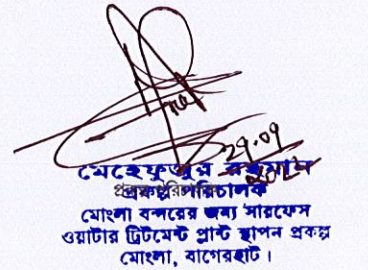 29.09
মেহেফুজুর রহমান
প্রকল্প পরিচালক
মোংলা বন্দরের জন্য সারফেস
ওয়াটার ট্রিটমেন্ট প্লান্ট স্থাপন প্রকল্প
মোংলা, বাগেরহাট।